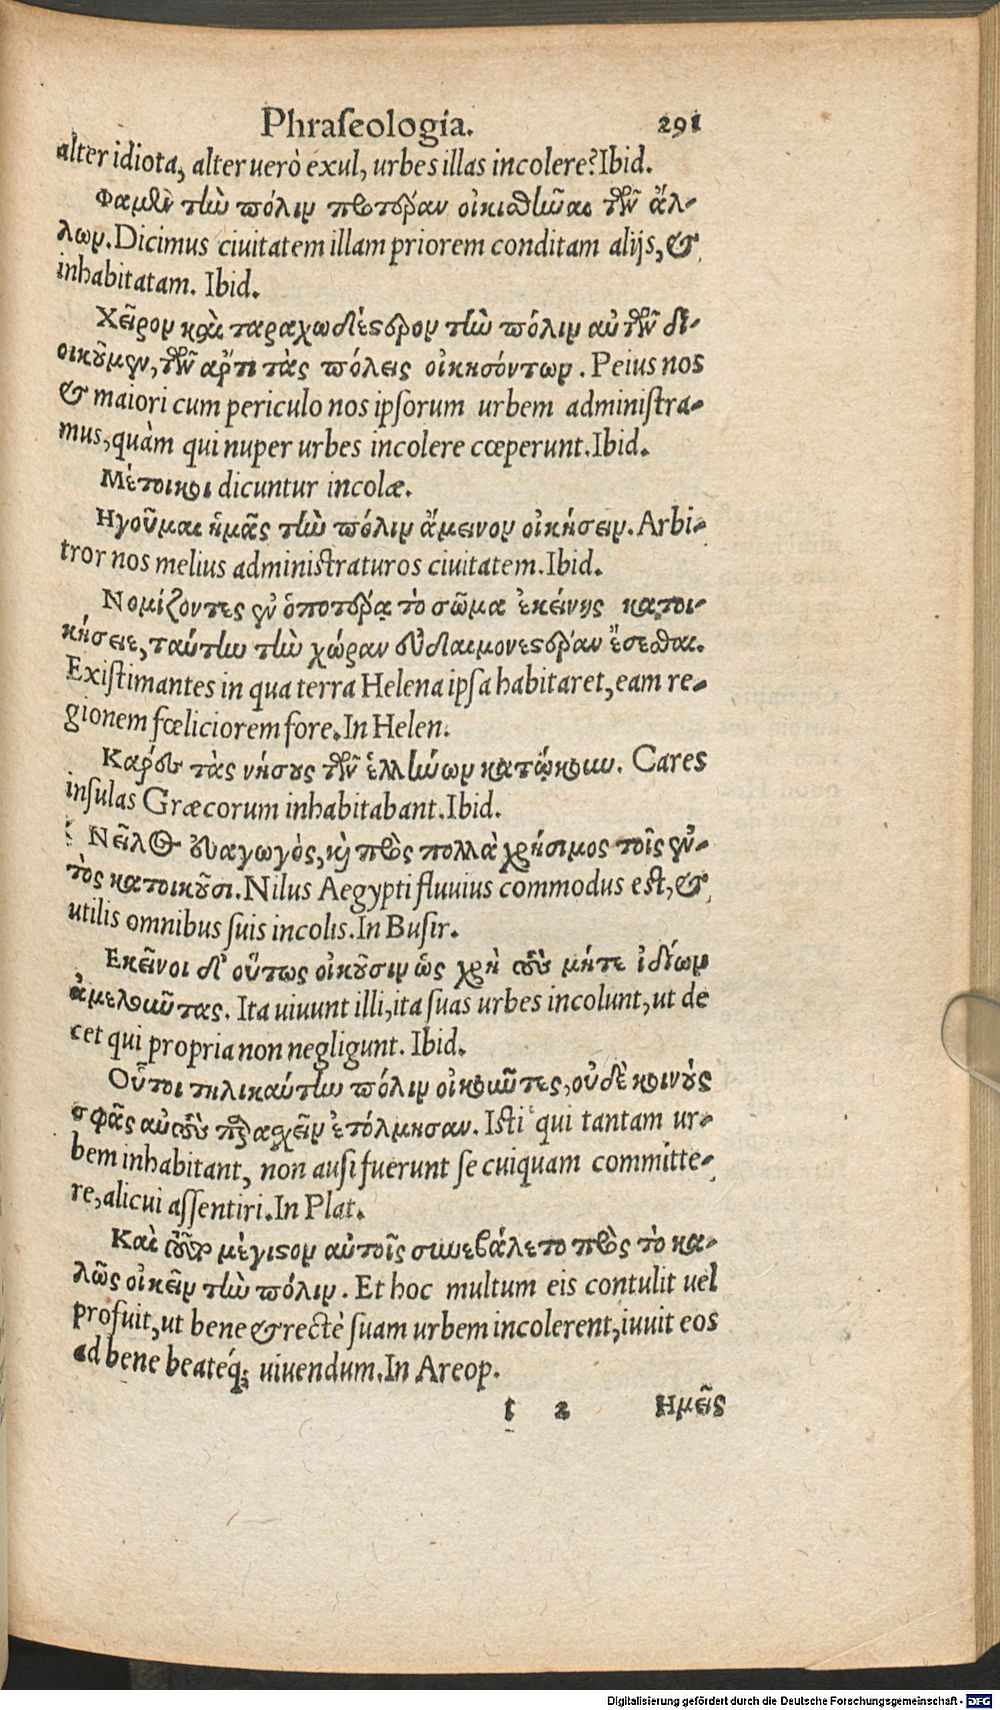 Phraſeologia. 291
alter idiota, alter uerò exul, urbes illas incolere? Ibid.
Φαμὲν τὴν πόλιν προτέραν οἰκισθῆναι τῶν ἄλ-
λων. Dicimus ciuitatem illam priorem conditam alijs, &
inhabitatam. Ibid.
Χεῖρον καὶ ταραχωδέςερον τὴν πόλιν αὐτῶν δι-
οικοῦμεν, τῶν ἄρτι τὰς πόλεις οἰκησόντων. Peius nos
& maiori cum periculo nos ipſorum urbem adminiſtra-
mus, quàm qui nuper urbes incolere cœperunt. Ibid.
Μέτοικοι dicuntur incolæ.
Ηγοῦμαι ἡμᾶς τὴν πόλιν ἄμεινον οἰκήσειν. Arbi-
tror nos melius adminiſtraturos ciuitatem. Ibid.
Νομίζοντες ἐν ὁποτέρᾳ τὸ σῶμα ἐκείνης κατοι-
κήσειε, ταύτην τὴν χώραν εὐδαιμονεςέραν ἔσεσθαι.
Exiſtimantes in qua terra Helena ipſa habitaret, eam re-
gionem fœliciorem fore. In Helen.
Κᾶρες τὰς νήσους τῶν ἑλλήνων κατῴκουν. Cares
inſulas Græcorum inhabitabant. Ibid.
Νεῖλος εὐαγωγὸς, κὴ πρὸς πολλὰ χρήσιμος τοῖς ἐν-
τὸς κατοικοῦσι. Nilus Aegypti fluuius commodus eſt, &
utilis omnibus ſuis incolis. In Buſir.
Εκεῖνοι δ' οὕτως οἰκοῦσιν ὡς χρὴ τοὺς μήτε ἰδίων
ἀμελοῦντας. Ita uiuunt illi, ita ſuas urbes incolunt, ut de
cet qui propria non negligunt. Ibid.
Οὗτοι τηλικαύτην πόλιν οἰκοῦντες, οὐδὲ κοινοὺς
σφᾶς αὐτοὺς παραχεῖν ἐτόλμησαν. Iſti qui tantam ur-
bem inhabitant, non auſi fuerunt ſe cuiquam committe-
re, alicui aſſentiri. In Plat.
Καὶ τοῦτο μέγιςον αὐτοῖς συνεβάλετο πρὸς τὸ κα-
λῶς οἰκεῖν τὴν πόλιν. Et hoc multum eis contulit uel
profuit, ut bene & rectè ſuam urbem incolerent, iuuit eos
ad bene beatéq; uiuendum. In Areop.
t 2 Ημεῖς
Digitalisierung gefördert durch die Deutsche Forschungsgemeinschaft - DFG